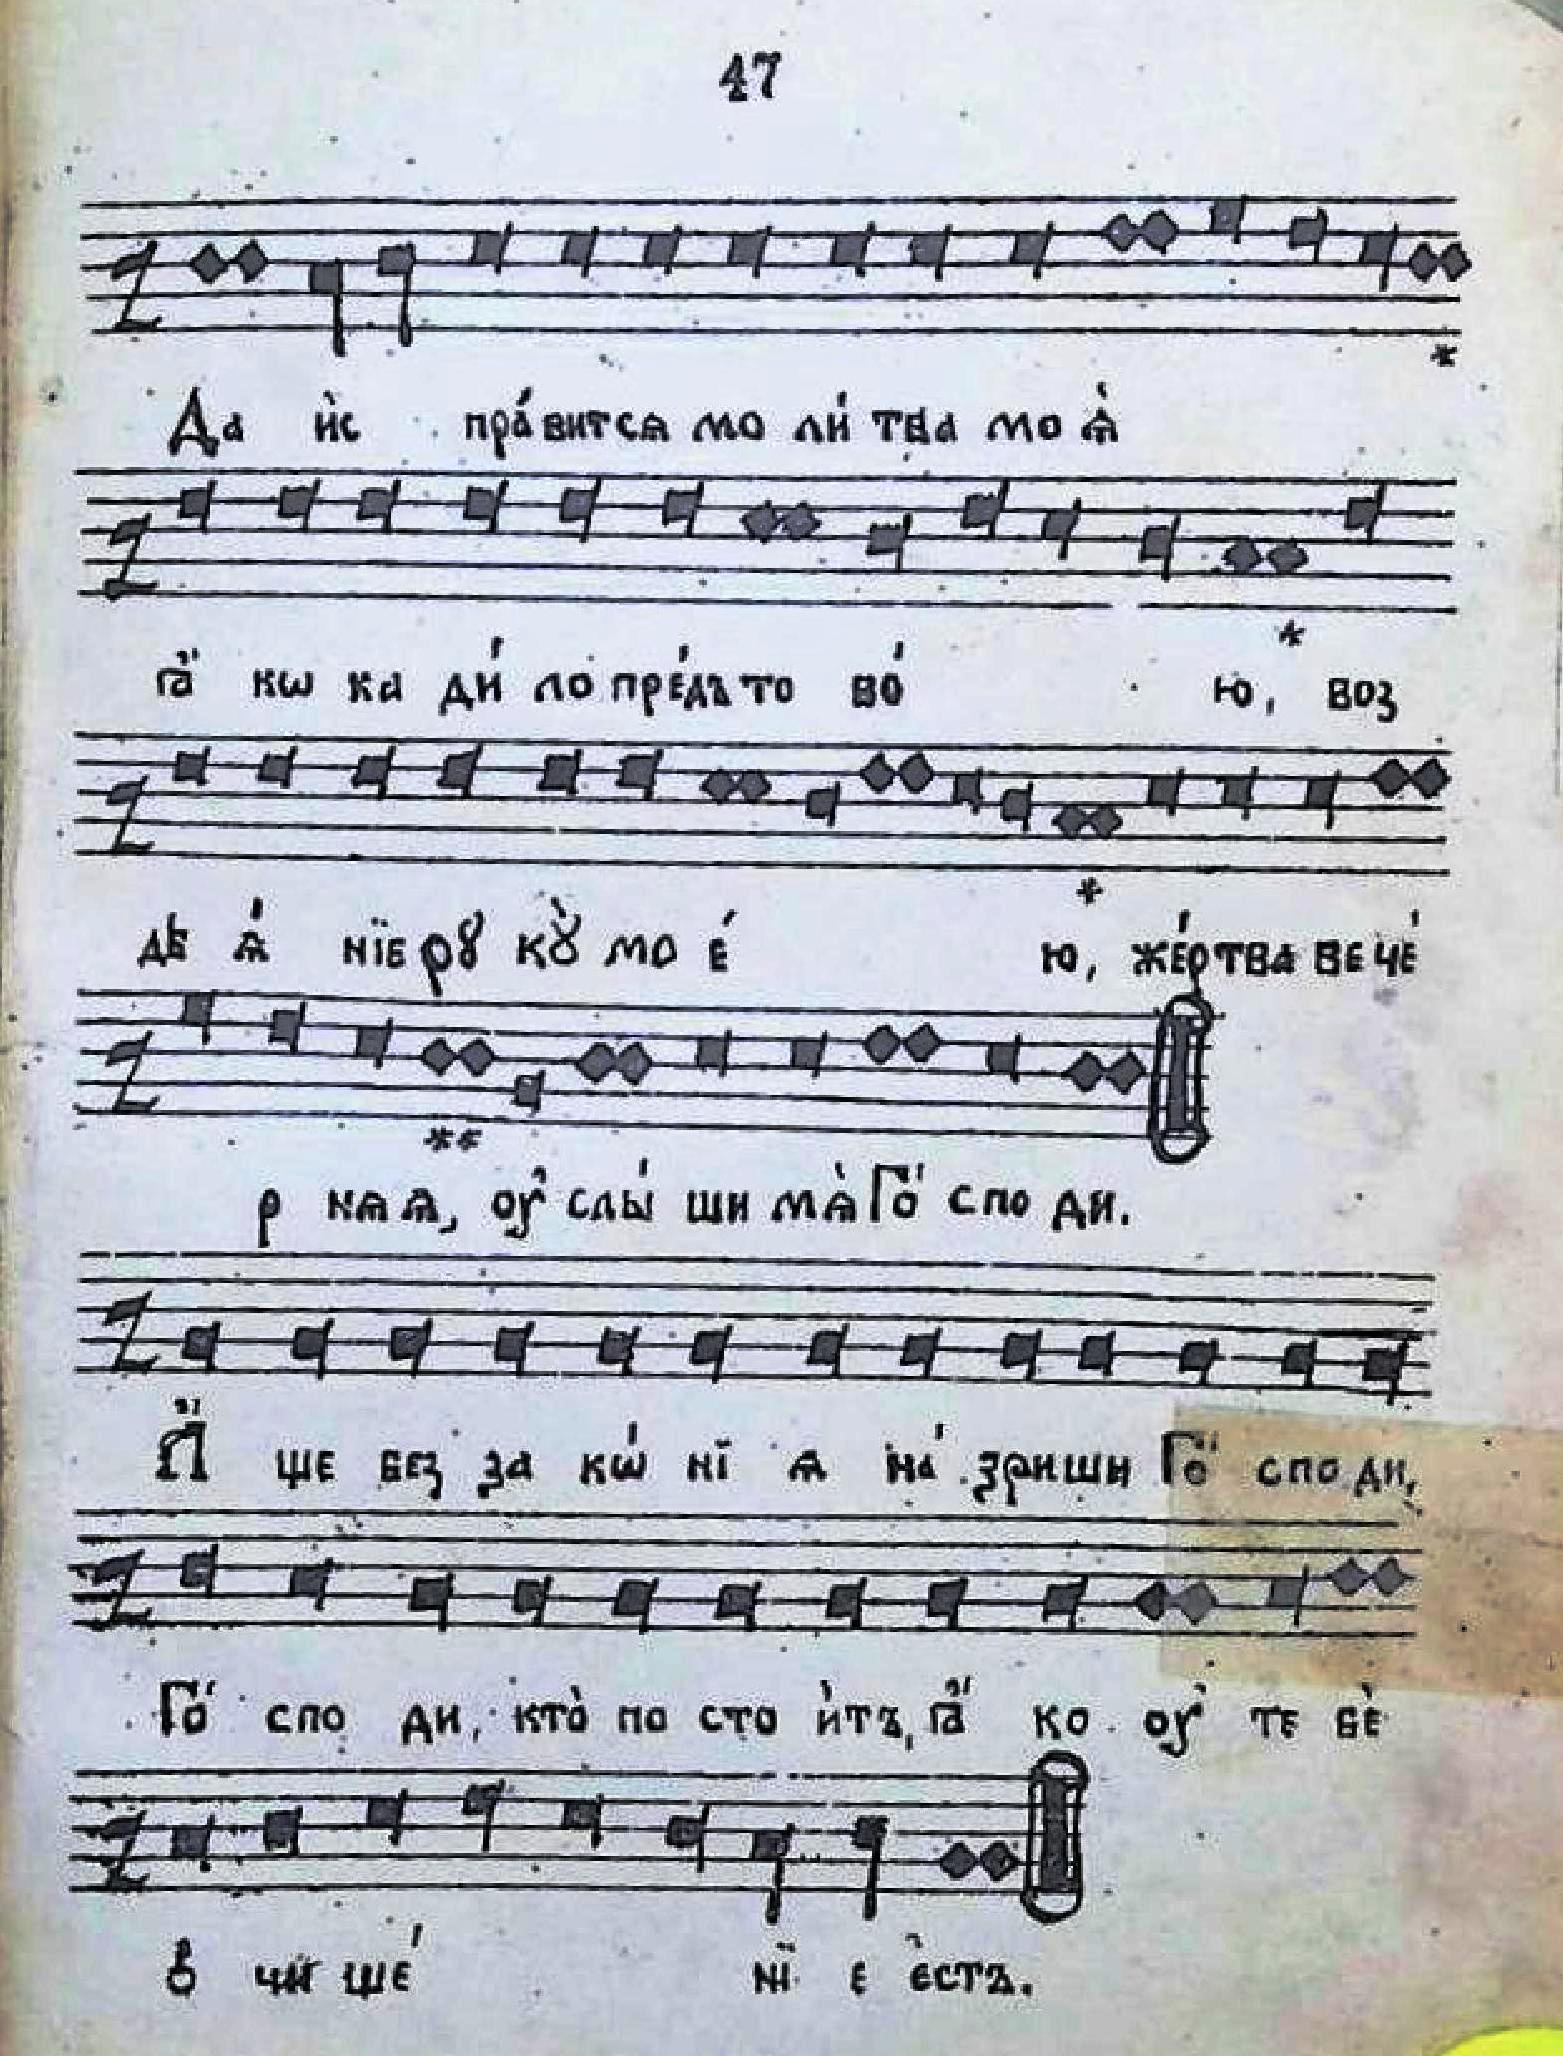 47
*
Да и҆с пра́витсѧ мо ли́ тва мо ѧ҆̀
*
ꙗ҆́ кѡ ка ди́ ло пре́дъ то бо́ ю, воз
*
дѣ ѧ҆́ нїе рꙋ кꙋ̀ мо е́ ю, же́ртва ве че́
**
р нѧѧ, оу҆ слы́ ши мѧ̀ Го́ спо ди.
А҆́ ще без за кѡ́ нї ѧ на́ зриши Го́ спо ди,
Го́ спо ди, кто̀ по сто и҆́тъ, ꙗ҆́ ко оу҆ те бѐ
ѡ чи ще́ нї е є҆стъ.